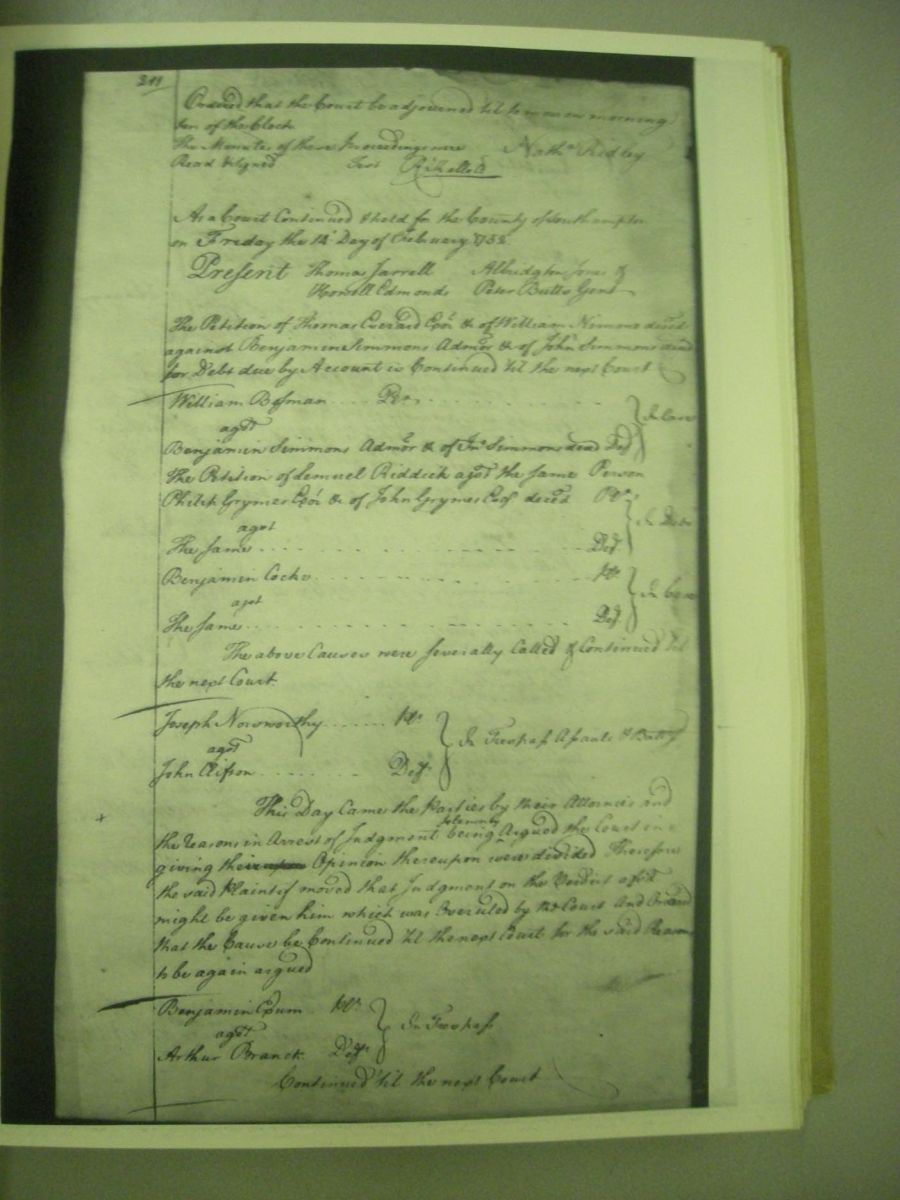 211
Ordered that the Court be adjourned til to morrow morning
ten of the Clock
The Minutes of these Proceedings were Nath.l Ridley
Read & Signed Test R Kello Cl
At a Court Continued & held for the County of Southampton
on Friday the 14 Day of February 1752
Present Thomas Jarrell Albridgton Jones &
Howell Edmonds Peter Butts Gent
The Petition of Thomas Everard Exor &c of William Nimmo deced
against Benjamin Simmons Admor &c of John Simmons deced
for Debt due by Account is Continued til the next Court
William Bosman Plt
agst In Case
Benjamin Simmons Admor &c of Jno Simmons deced Deft
The Petition of Lemuel Riddick agst the same Person
Philip Grymes Exor &c of John Grymes Esqr deced Plt
agst In Debt
The Same Deft
Benjamin Cocke Plt
agst In Case
The Same Deft
The above Causes were severally Called & Continued til
the next Court.
Joseph Norsworthy Plt
agst In Trespass Assault & Battery
John Clifton Deft
This Day Came the Parties by their Attornies and
the reasons in Arrest of Judgment being solemnly Argued the Court in
giving their Opinion thereupon were divided Therefore
the said Plaintif moved that Judgment on the Verdict afsd
might be given him which was Overruled by the Court And Ordered
that the Cause be Continued til the next Court for the said Reasons
to be again argued
Benjamin Exum Plt
agst In Trespass
Arthur Branch Deft
Continued til the next Court